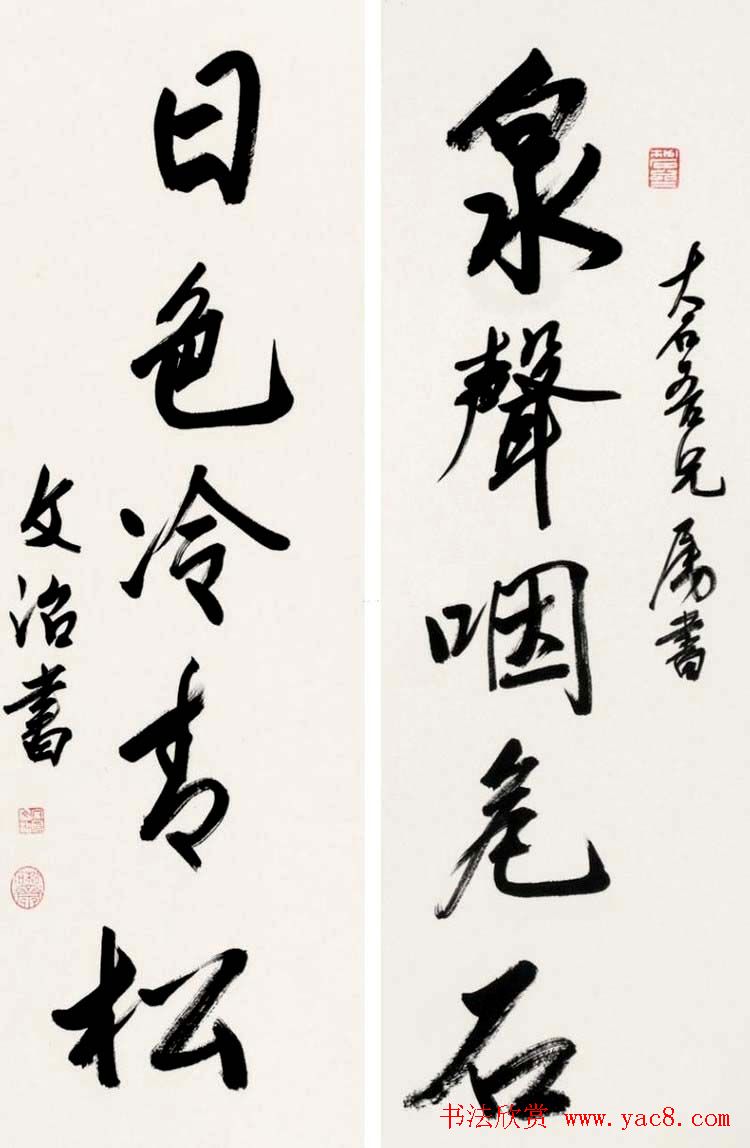 大石吾兄属书
泉聲咽危石
日色冷青松
文治書
书法欣赏 www.yac8.com